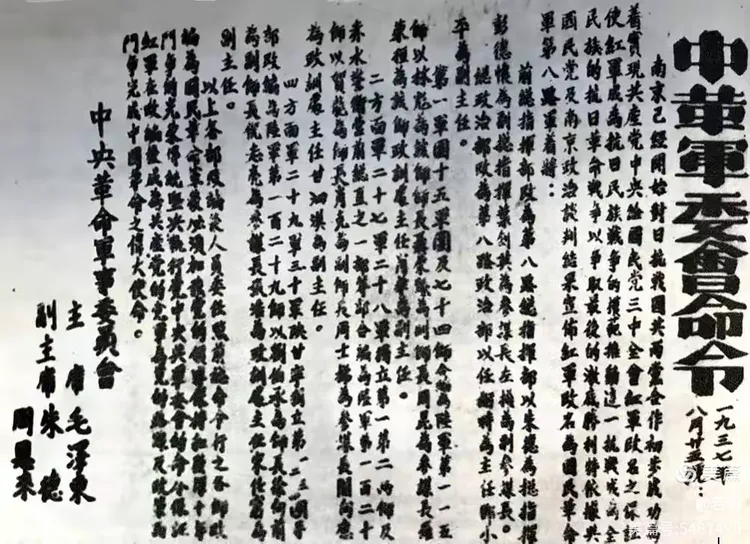 中革軍委會命令
一九三七年
八月廿五日：
南京已經開始對日抗戰國共兩黨合作初步成功
着實現共產黨中央給國民黨三中全會紅軍改名之保証
使紅軍成為抗日民族戰爭的模範推動這一抗戰成為全
民族的抗日革命戰爭以爭取最後的澈底勝利特依據共
國民黨及南京政治談判結果宣佈紅軍改名為國民革命
軍第八路軍着將：
前總指揮部改為第八路總指揮部以朱德為總指揮
彭德懷為副總指揮葉劍英為參謀長左權為副參謀長。
總政治部改為第八路政治部以任弼時為主任鄧小
平為副主任。
第一軍團十五軍團及七十四師合編為陸軍第一一五
師以林彪為該師師長聶榮臻為副師長周昆為參謀長羅
榮桓為該師政訓處主任蕭華為副主任。
二方面軍二十七軍二十八軍獨立第一第二兩師及
赤水警衛營前總直之一部等部合編為陸軍第一百二十
師以賀龍為師長蕭克為副師長周士第為參謀長關向應
為政訓處主任甘泗淇為副主任。
四方面軍二十九軍三十軍陝甘寧獨立第一二三四團等
部改編為陸軍第一百二十九師以劉伯承為師長徐向前
為副師長倪志亮為參謀長張浩為政訓處主任宋任窮為
副主任。
以上各部改編後人員委任照前總命令行之各部改
編為國民革命軍後必須加強黨的領導保持和發揚十年
鬥爭的光榮傳統堅決執行黨中央與軍委會的命令保証
紅軍在改編後成為共產黨的黨軍為黨的路線及政策而
鬥爭完成中國革命之偉大使命。
中央革命軍事委員會
主席毛澤東
副主席朱德
周恩來
美篇